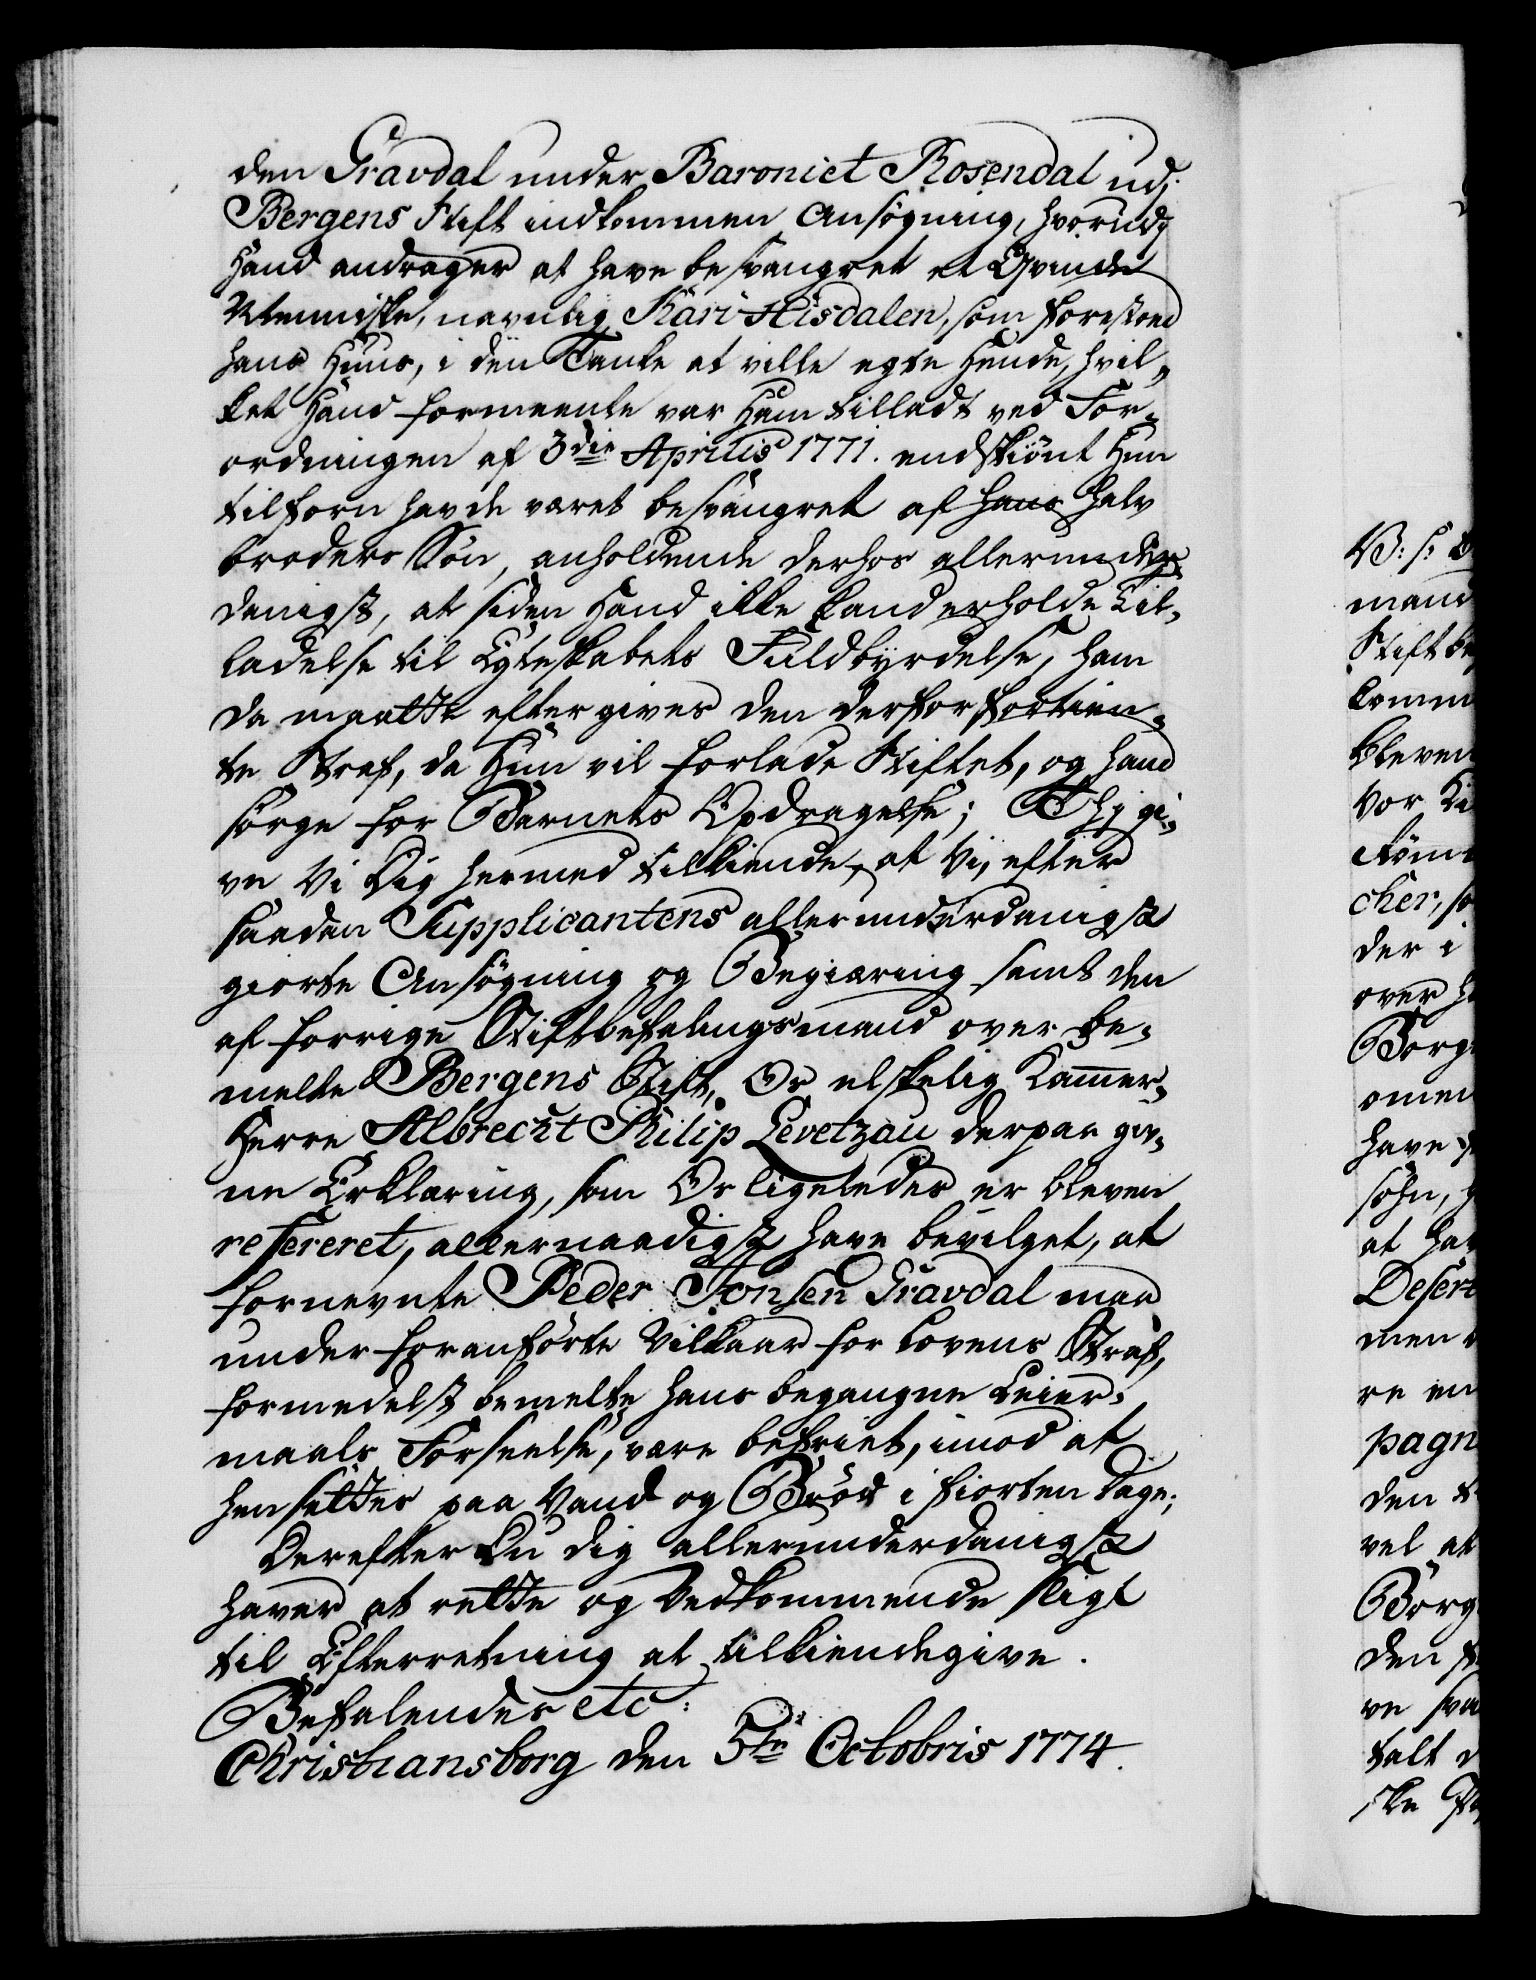 den Gravdal under Baroniet Rosendal udj
Bergens Stift indkommen Ansøgning, hvorudj
Hand andrager at have besvangret et Qvinde
Menniske, navnlig Kari Hisdalen, som forestoed
hans Huus, i den Tanke at ville egte Hende, hvil-
ket Hand formeente var Ham tilladt ved For-
ordningen af 3die Aprilis 1771. endskiønt Hun
tilforn havde været besvangret af hans halv
broders Søn, anholdende derhos allerunder-
danigst, at siden Hand ikke kand erholde Til-
ladelse til Egteskabets Fuldbyrdelse, ham
da maatte eftergives den derfor fortien-
te Straf, da Hun vil forlade Stiftet, og hand
sørge for Barnets Opdragelse; Thj gi-
ve Vi Dig hermed tilkiende, at Vi, efter
saadan Supplicantens allerunderdanigst
giorte Ansøgning og Begiæring samt den
af forrige Stiftbefalingsmand over be-
melte Bergens Stift, Os elskelig Kammer-
Herre Albrecht Philip Levetzau derpaa giv-
ne Erklæring, som Os ligeledes er bleven
refereret, allernaadigst have bevilget, at
fornevnte Peder Jonsen Gravdal maa
under foranførte Vilkaar for Lovens Straf,
formedelst bemelte hans begangne Leier-
maals Forseelse, være befriet, imod at
hensættes paa Vand og Brød i fiorten Dage;
Derefter Du dig allerunderdanigst
haver at rette og Vedkommende sligt
til Efterretning at tilkiendegive.
Befalendes etc:
Christiansborg den 5te Octobris 1774.